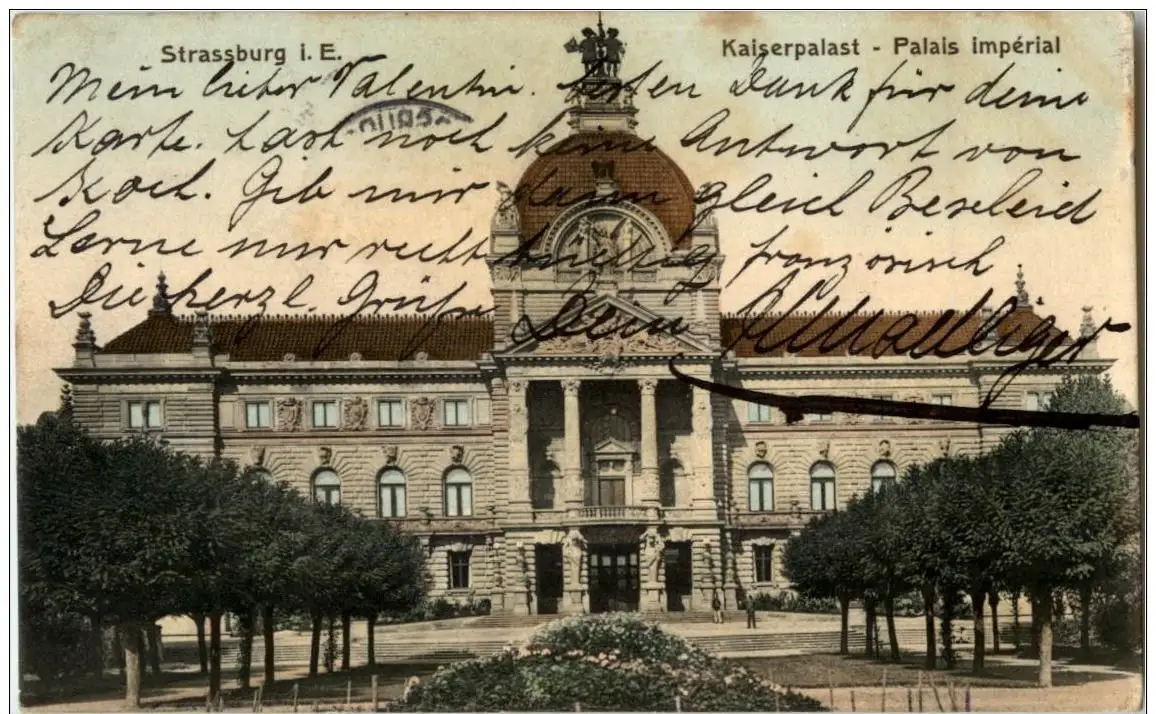 Strassburg i. E.
Kaiserpalast - Palais impérial
Mein lieber Valentin. besten Dank für deine
Karte. hast noch keine Antwort von
Koch. Gib mir dann gleich Bescheid
Lerne nur recht tüchtig französisch
Die herzl. Grüße Dein